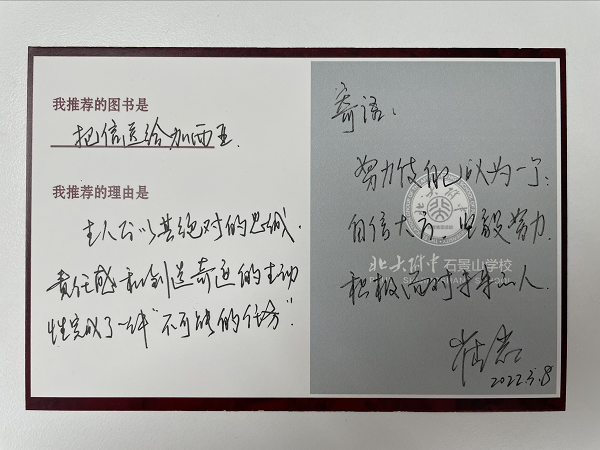 我推荐的图书是
把信送给加西亚.
我推荐的理由是
主人公以其绝对的忠诚、
责任感和创造奇迹的主动
性完成了一件“不可能的任务”.
寄语:
努力使自己成为一个:
自信大方、坚毅努力、
积极面对未来的人.
北大附中 石景山学校
2022.3.8